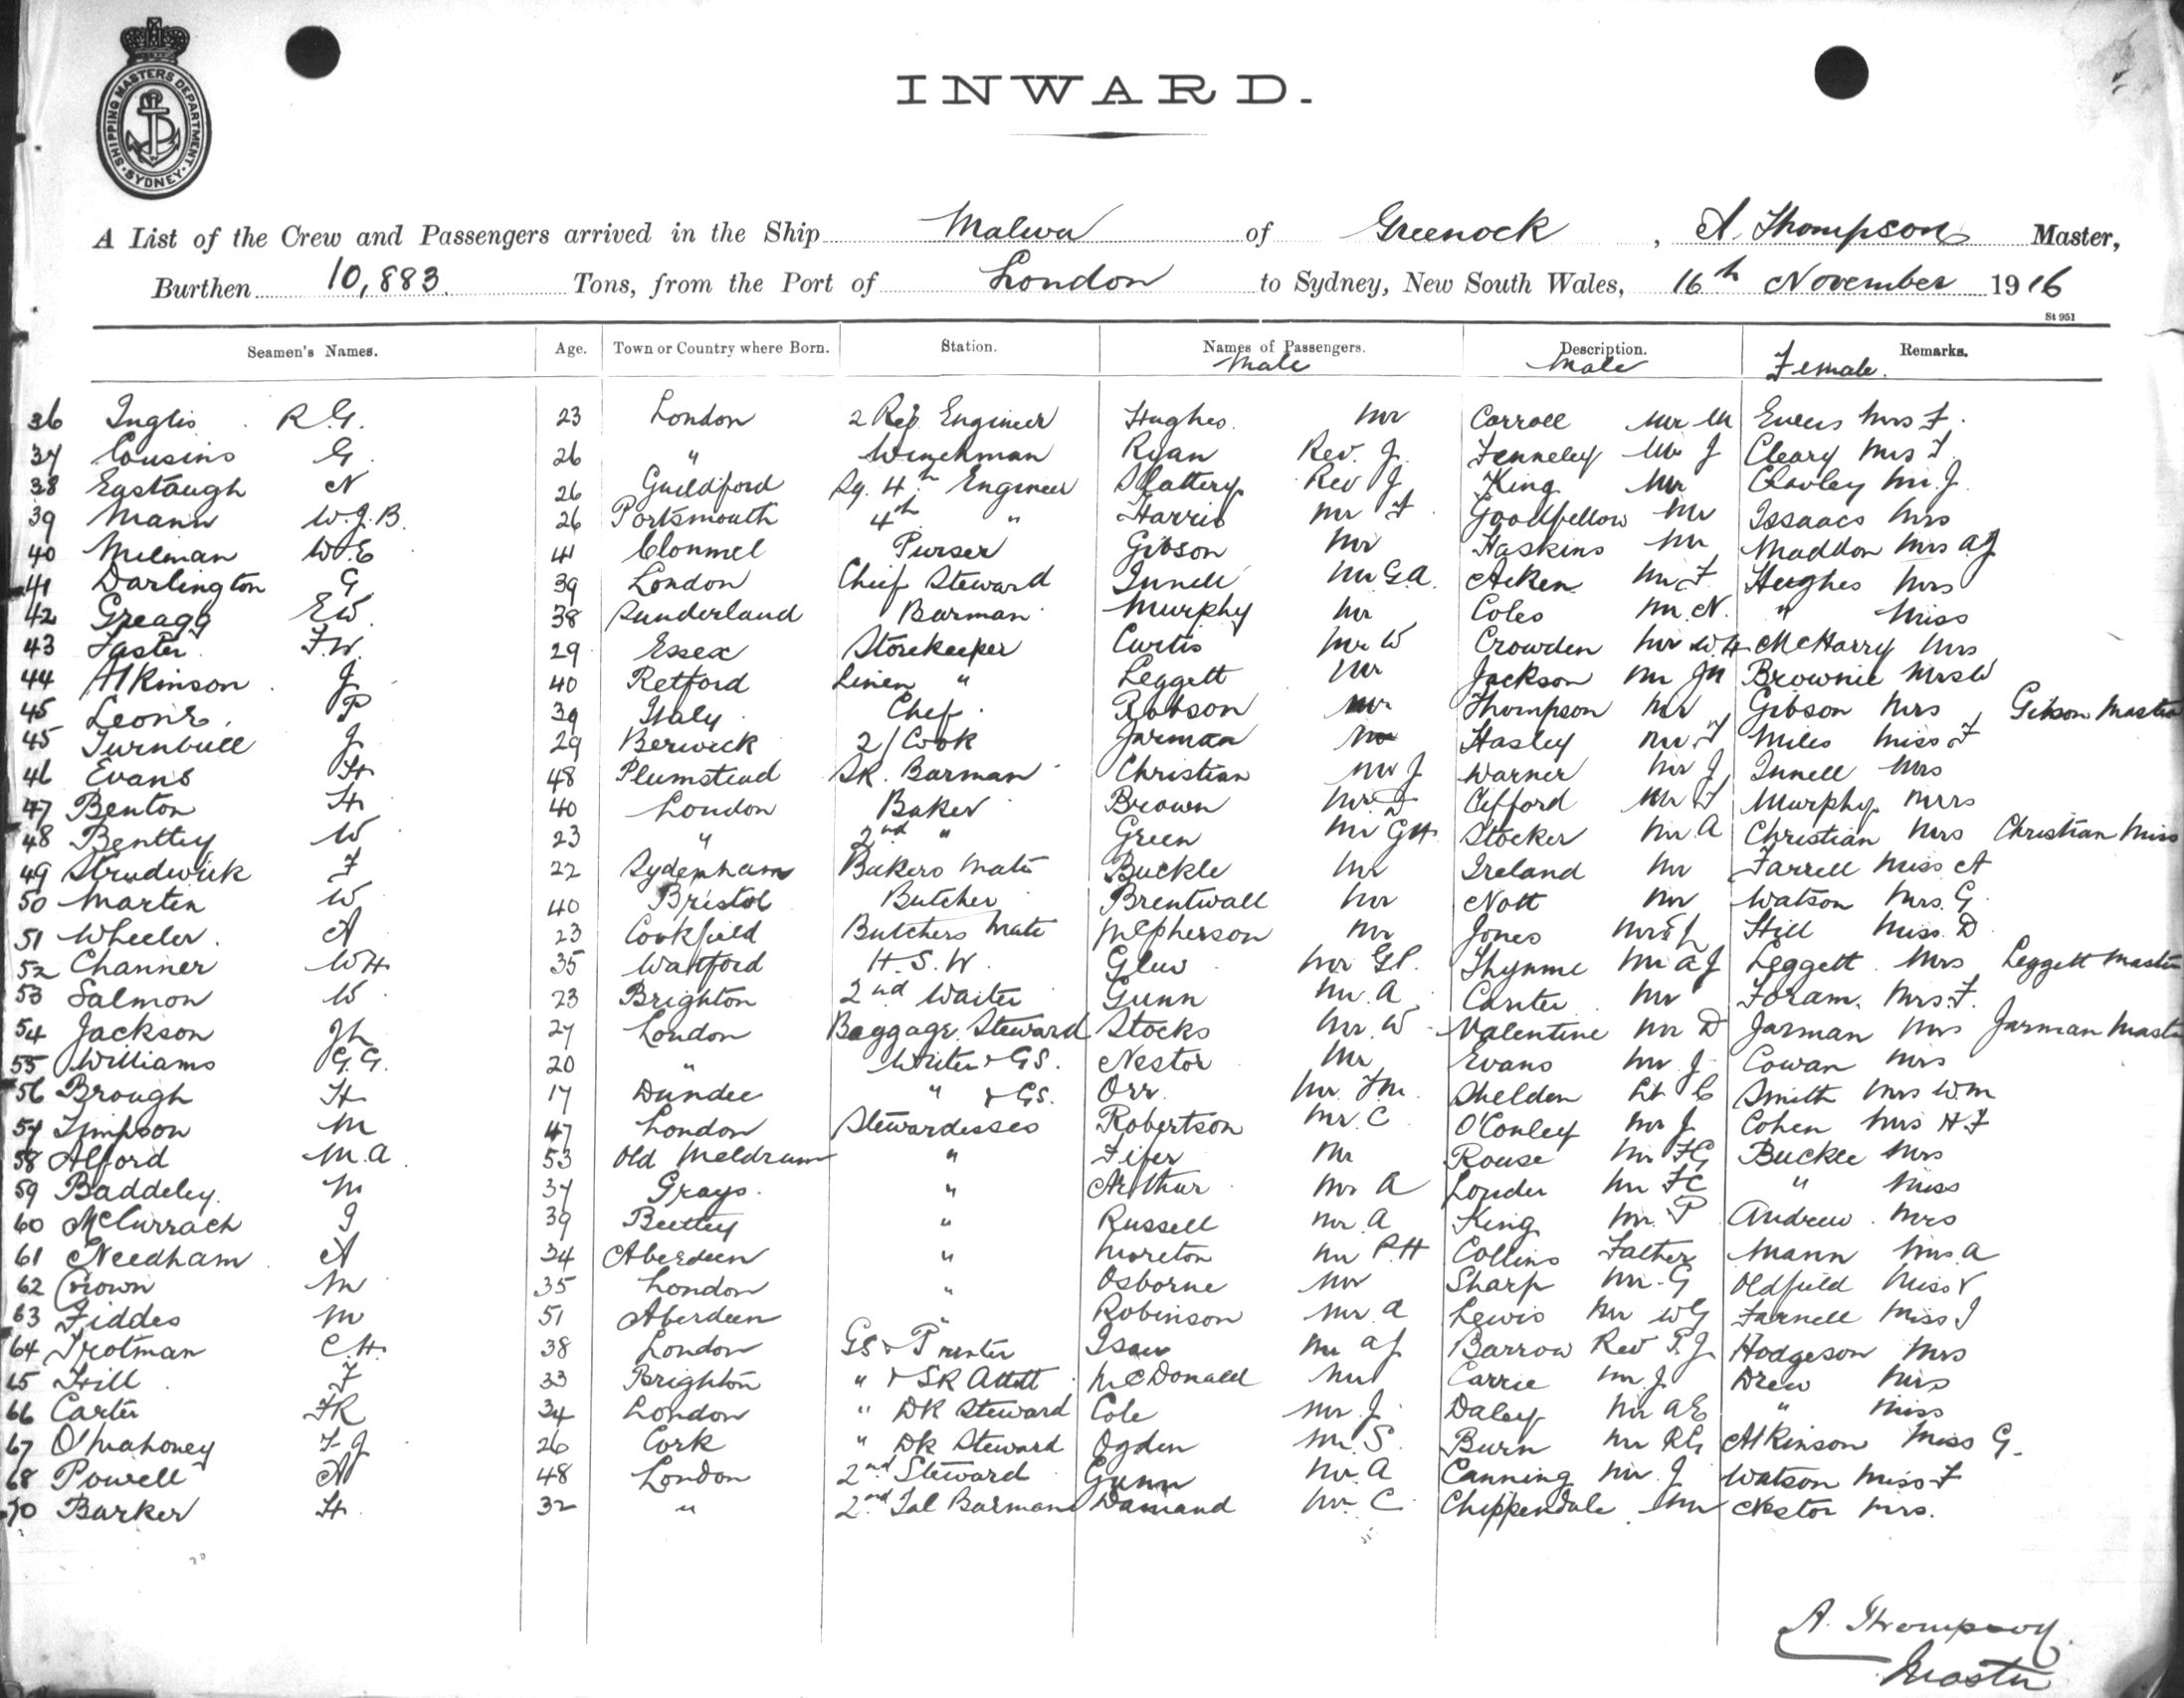 SHIPPING MASTERS DEPARTMENT
SYDNEY
INWARD.
A List of the Crew and Passengers arrived in the Ship Malwa of Greenock, A. Thompson Master,
Burthen 10,883 Tons, from the Port of London to Sydney, New South Wales, 16th November 1916
St 951
Seamen's Names. Age. Town or Country where Born. Station. Names of Passengers. Description. Remarks.
Male Male Female.
36 Inglis R.G. 23 London 2 Ref. Engineer Hughes Mr Carroll Mr M Mrs F.
37 Cousins G. 26 " Winchman Ryan Rev. J. Fenneley Mr J Cleary Mrs F.
38 Eastaugh N 26 Guildford 4th Engineer Slattery Rev J King Mr
39 Mann W.J.B. 26 Portsmouth 4th " Harris Mr F Goodfellow Mr Issaacs Mrs
40 Milman W.E 41 Clonmel Purser Gibson Mr Haskins Mr Maddon Mrs A.J
41 Darlington G 39 London Chief Steward Innell Mr G.A. Aiken Mr F Hughes Mrs
42 Greagg E.W. 38 Sunderland Barman Murphy Mr Coles Mr N. " Miss
43 F.W. 29 Essex Storekeeper Curtis Mr W Crowden Mr W.H McHarry Mrs
44 Atkinson J 40 Retford Linen " Leggett Mr Jackson Mr Brownie Mrs W
45 P 39 Italy Chef Robson Mr Thompson Mr Gibson Mrs Gibson Master
45 Turnbull J 29 Berwick 2/Cook Jarman Mr Hasley Mr F Miles Miss F
46 Evans H 48 Plumstead SR. Barman Christian Mr J Warner Mr J Innell Mrs
47 Benton H 40 London Baker Brown Mr Clifford Mr Murphy Mrs
48 Benttey W 23 " 2nd " Green Mr G.H. Stocker Mr A Christian Mrs Christian Miss
49 Strudwick F 22 Sydenham Bakers Mate Buckle Mr Ireland Mr Farrell Miss A
50 Martin W 40 Bristol Butcher Brentwall Mr Nott Mr Watson Mrs. G
51 Wheeler A 23 Cookfield Butchers Mate McPherson Mr Jones Mr Hill Miss D
52 Channer W.H. 35 Watford H.S.W. Glew Mr Thynne Mr A J Leggett Mrs Leggett Master
53 Salmon W 23 Brighton 2nd Waiter Gunn Mr. A Canter Mr Foram. Mrs. F.
54 Jackson 27 London Baggage Steward Stocks Mr. W Valentine Mr D Jarman Mrs Jarman Master
55 Williams G.G. 20 " Writer & GS. Nestor Mr Evans Mr J Cowan Mrs
56 Brough H 17 Dundee " & GS. Orr Mr. F.M. Sheldon Smith Mrs W.M
57 Timpson M 47 London Stewardesses Robertson Mr. C O'Conley Mr J Cohen Mrs H F
58 Alford M.A 53 Old Meldrum " Fifer Mr Rouse Mr F G Buckle Mrs
59 Baddeley M 37 Grays " Arthur Mr A Louder Mr F C " Miss
60 McCurrach J 39 " Russell Mr. A King Mr. P Andrew Mrs
61 Needham A 34 Aberdeen " Moreton Mr P.H Collins Father Mann Mrs. A
62 Crown M 35 London " Osborne Mr Sharp Mr. G Oldfield Miss V
63 Fiddes M 51 Aberdeen " Robinson Mr. A Lewis Mr W G Farnell Miss J
64 Trotman C.H. 38 London GS & Printer Mr A J Barrow Rev P.J. Hodgeson Mrs
65 Hill F 33 Brighton " & SR Attdt McDonald Mr Carrie Mr J Drew Mrs
66 Carter F R 34 London " DK Steward Cole Mr J. Daley Mr A E " Miss
67 O'Mahoney F J 26 Cork " DK Steward Ogden Mr. S. Burn Mr Atkinson Miss G.
68 Powell A 48 London 2nd Steward Gunn Mr. A Canning Mr. J Watson Miss F
70 Barker H. 32 " 2nd Sal Barman Damand Mr. C Chippendale Mr Nestor Mrs.
A. Thompson
Master